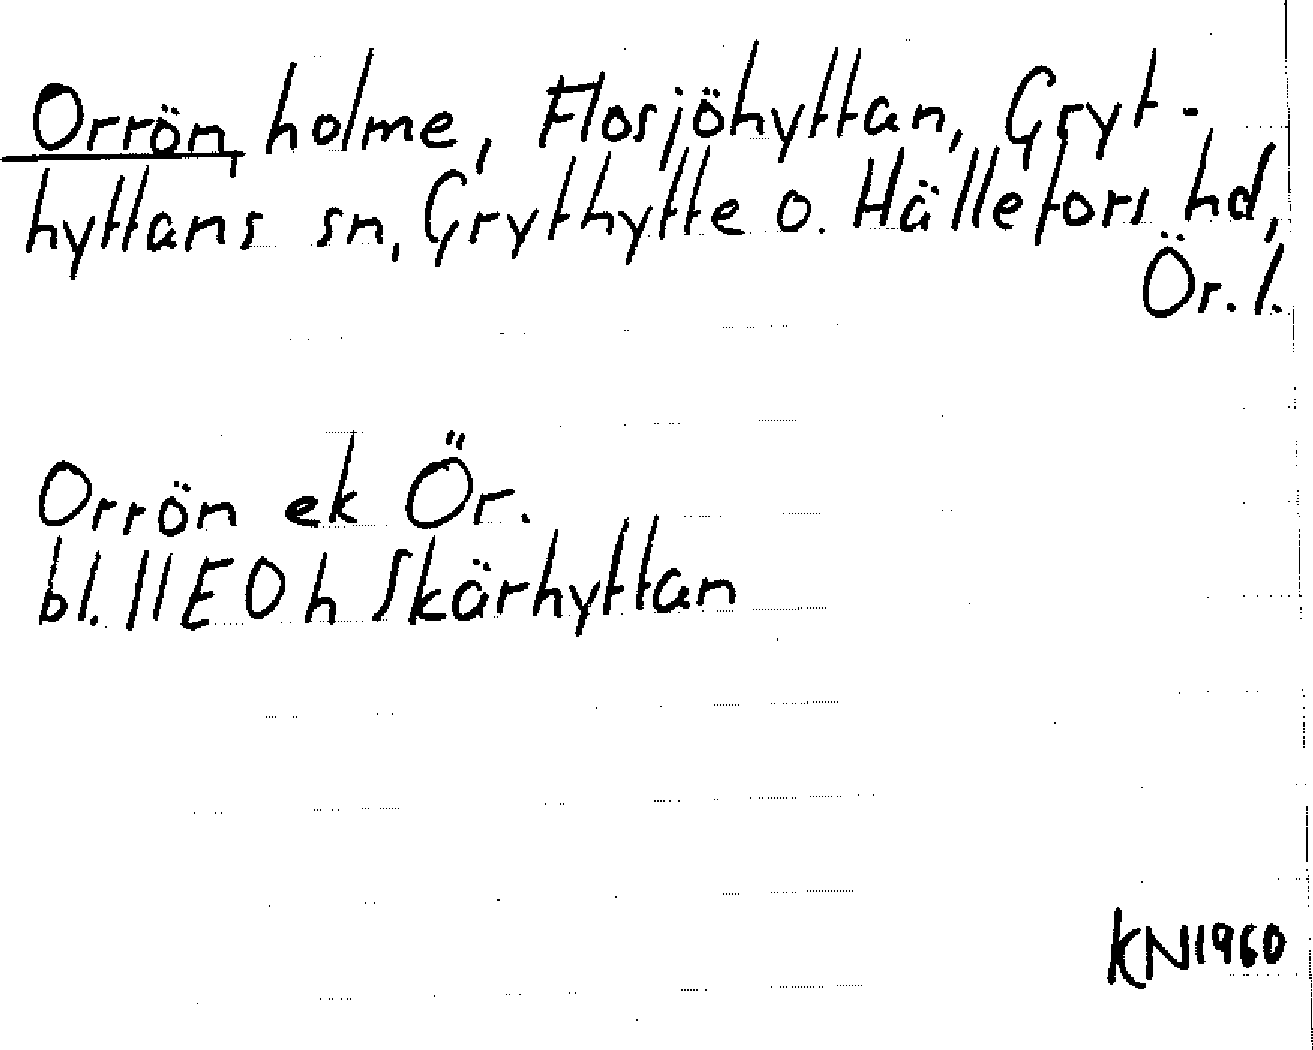 Orrön, holme, Flosjöhyttan, Gryt-
hyttans sn, Grythytte o. Hällefors hd,
Ör. l.
Orrön ek Ör.
bl. 11E0h Skärhyttan
KN1960